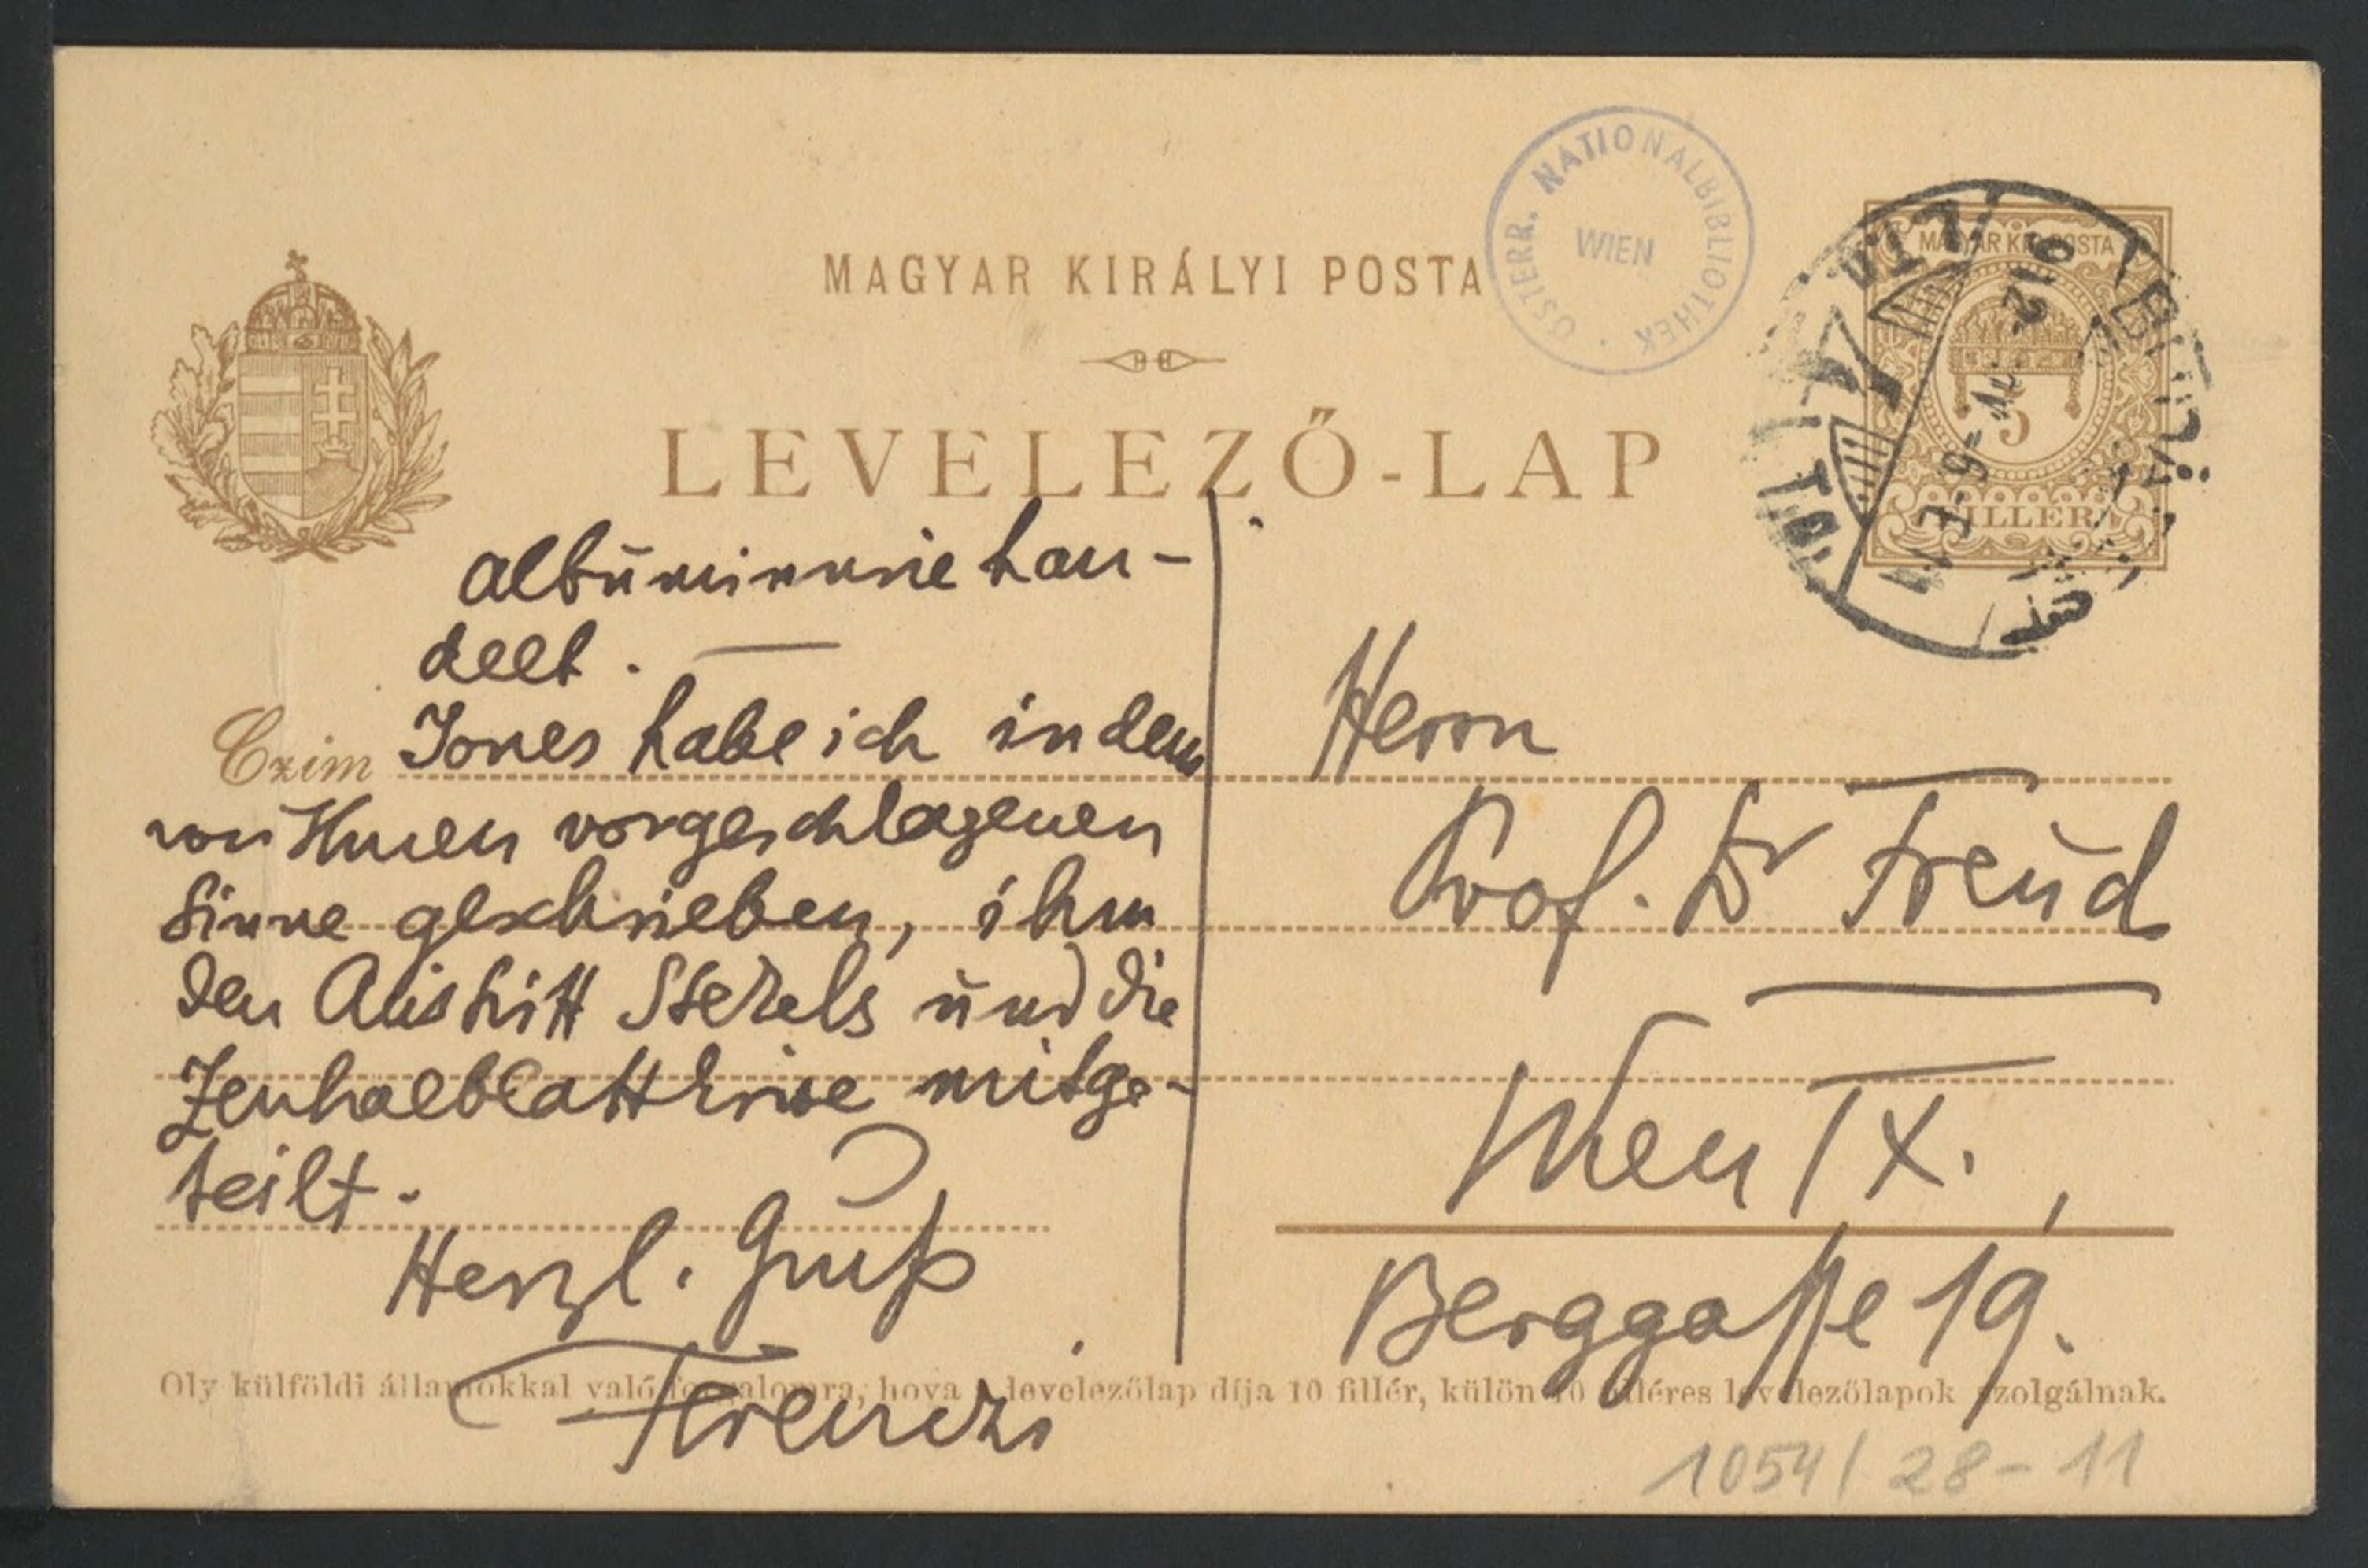 MAGYAR KIRÁLYI POSTA
LEVELEZŐ-LAP
ÖSTERR. NATIONALBIBLIOTHEK
WIEN
MAGYAR KIR. POSTA
5
FILLER
albūminurie han-
delt. —
Czim
Jones habe ich in dem
von Ihnen vorgeschlagenen
Sinne geschrieben, ihm
den Austritt Stekels und die
Zentralblattkrise mitge-
teilt.
Herzl. Gruß
Ferenczi
Herrn
Prof. Dr Freud
Wien IX.,
Berggasse 19.
Oly külföldi államokkal való forgalomra, hova a levelezőlap díja 10 fillér, külön 10 filléres levelezőlapok szolgálnak.
1054/28-11